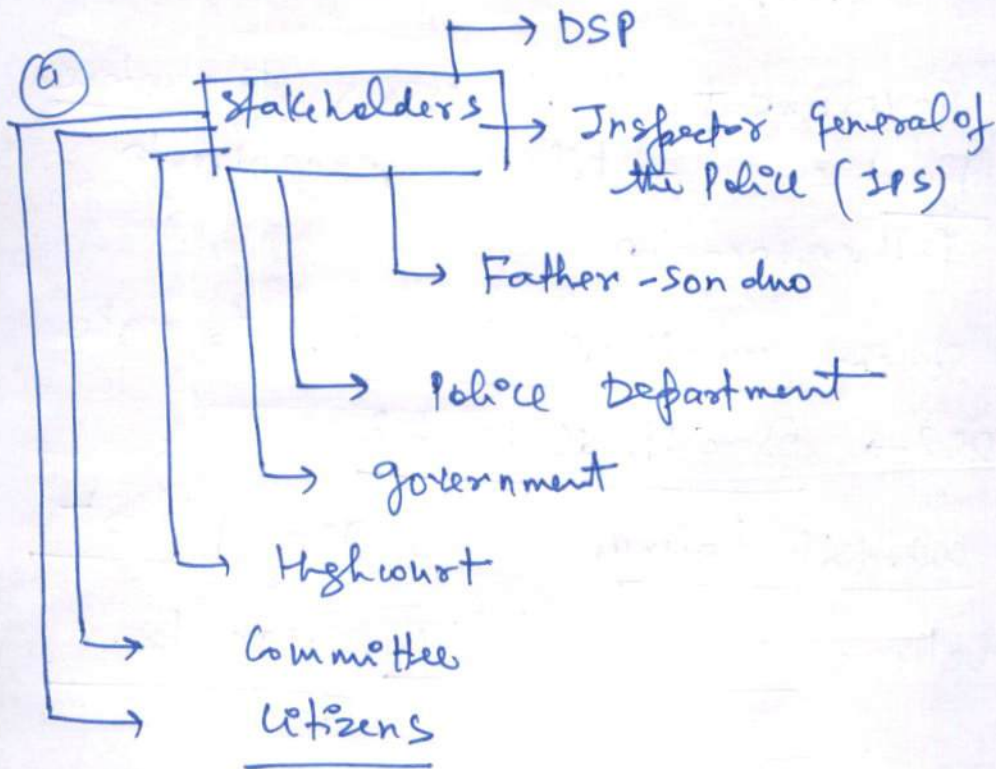 DSP
(a)
Stakeholders
Inspector General of
the Police (IPS)
Father-son duo
Police Department
government
Highcourt
Committee
Citizens